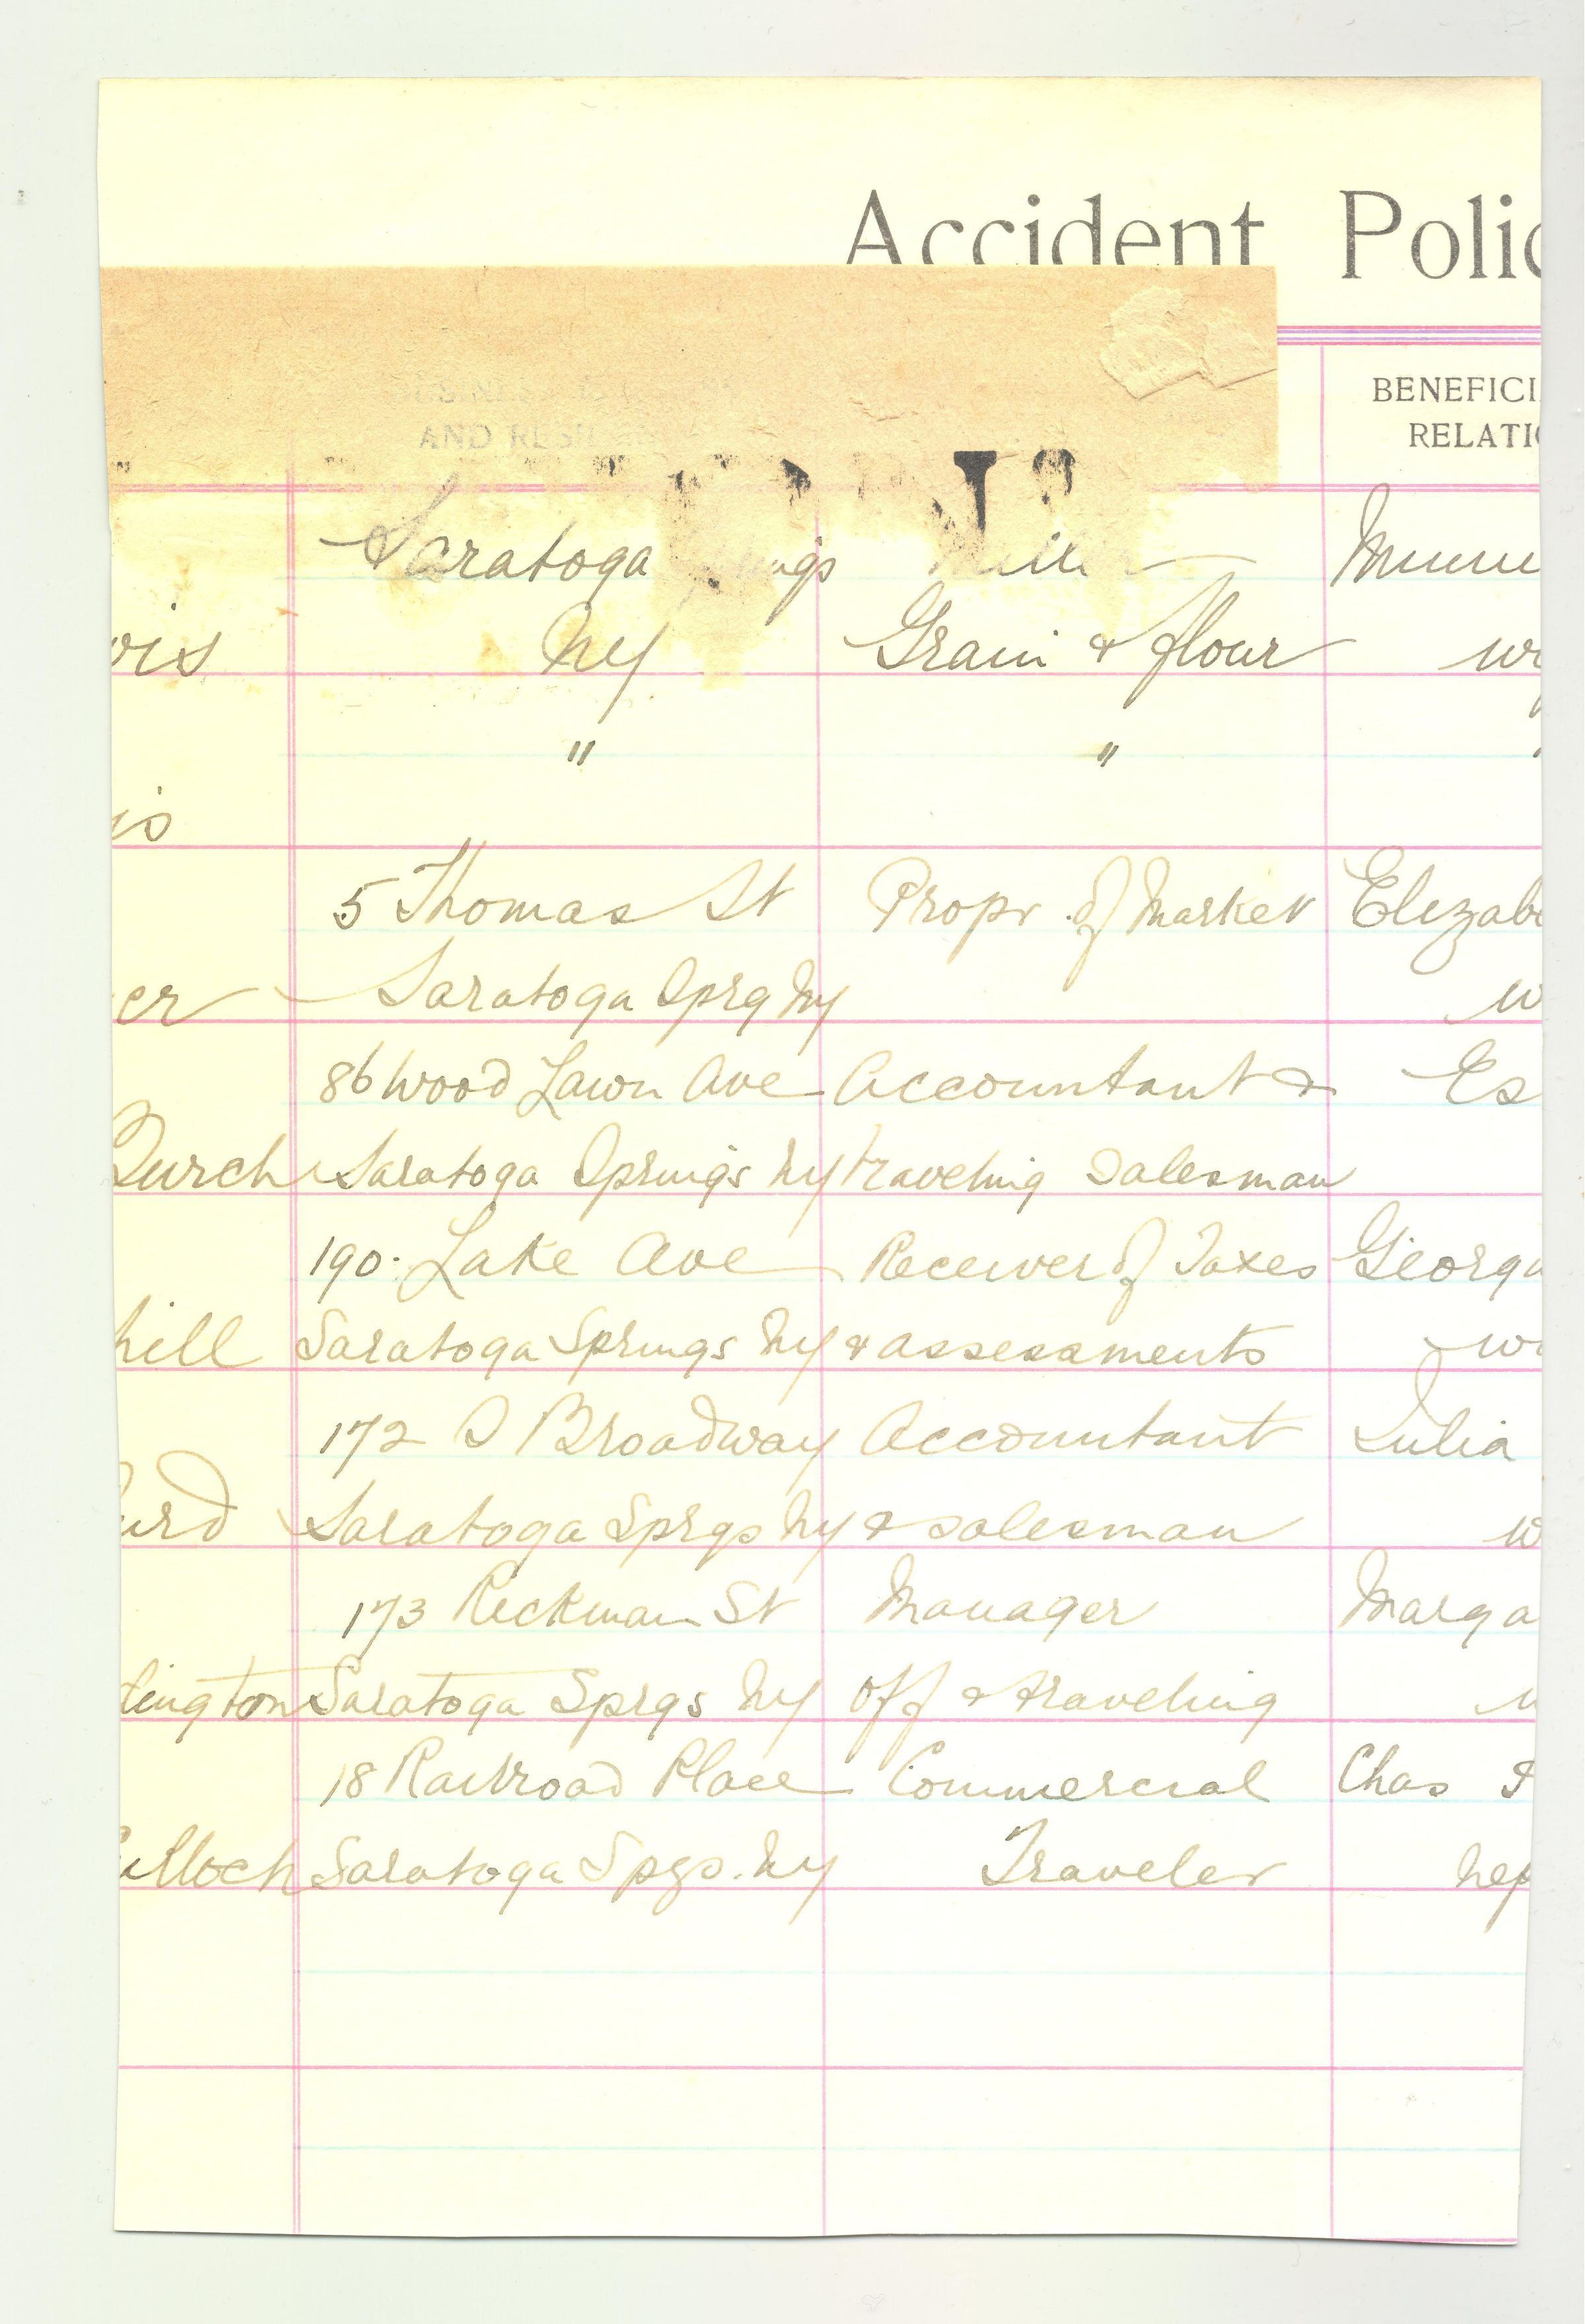 Accident Polic
BENEFICI
RELATI
AND RESI
Saratoga Minnie
vis Ny Grain & flour wi
" "
is
5 Thomas St Propr. of Market Elizabe
er Saratoga Sprg Ny w
86 Wood Lawn Ave Accountant & Es
Burch Saratoga Springs Ny traveling Salesman
190. Lake Ave Receiver of Taxes Georg
hill Saratoga Springs Ny & assessments wi
172 S Broadway Accountant Julia
urd Saratoga Sprgs Ny & salesman w
173 St Manager Marga
dington Saratoga Sprgs Ny off & traveling
18 Railroad Place Commercial Chas
ulloch Saratoga Spgs. Ny Traveler nep